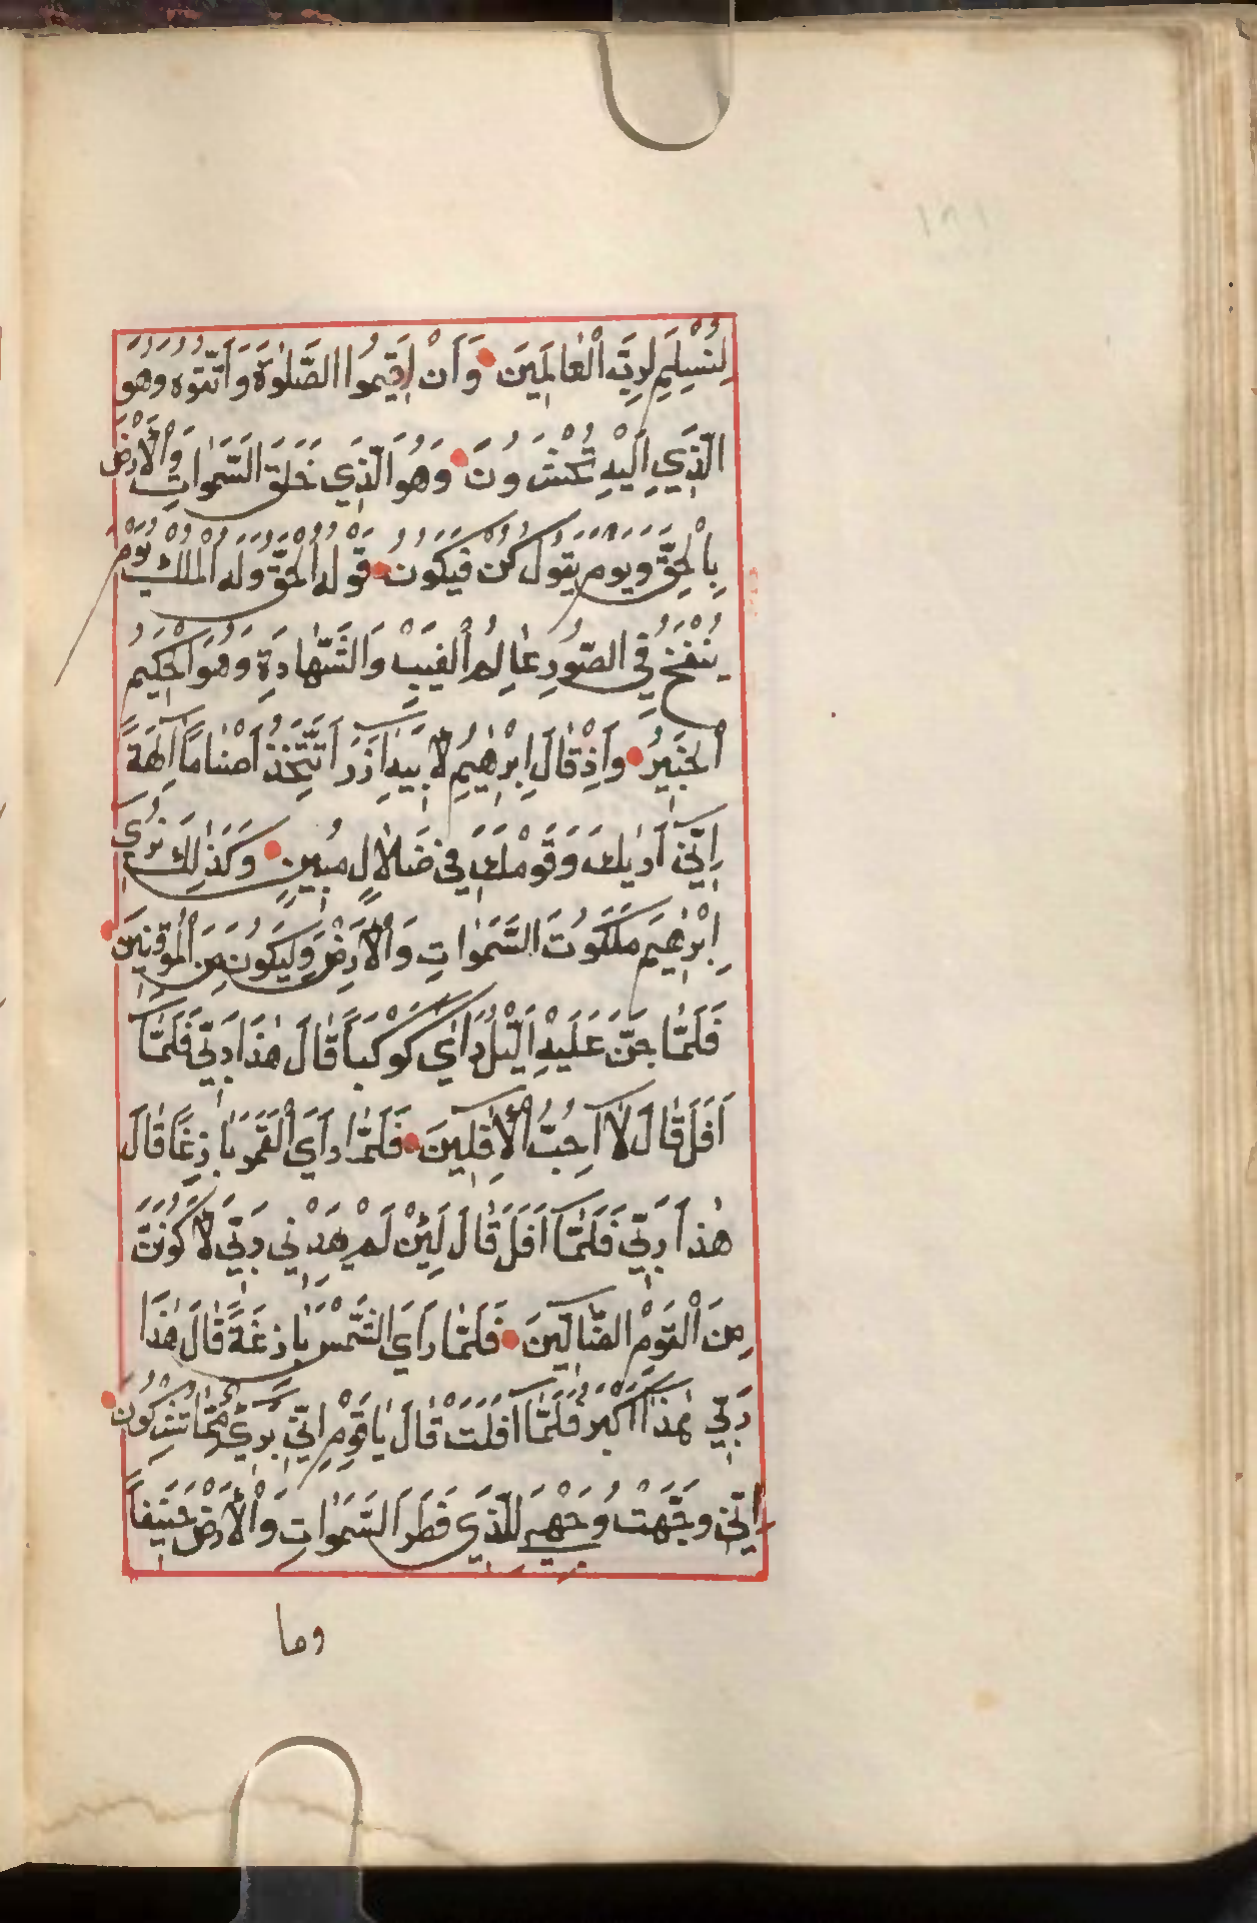 لِنُسْلِمَ لِرَبِّ الْعَالَمِينَ وَاَنْ اَقِيمُوا الصَّلٰوةَ وَاتَّقُوهُ وَهُوَ
الَّذِي اِلَيْهِ تُحْشَرُونَ وَهُوَ الَّذِي خَلَقَ السَّمٰوَاتِ وَالْاَرْضَ
بِالْحَقِّ وَيَوْمَ يَقُولُ كُنْ فَيَكُونُ قَوْلُهُ الْحَقُّ وَلَهُ الْمُلْكُ يَوْمَ
يُنْفَخُ فِي الصُّورِ عَالِمُ الْغَيْبِ وَالشَّهَادَةِ وَهُوَ الْحَكِيمُ
الْخَبِيرُ وَاِذْ قَالَ اِبْرٰهِيمُ لِاَبِيهِ اٰزَرَ اَتَتَّخِذُ اَصْنَامًا اٰلِهَةً
اِنِّي اَرٰيكَ وَقَوْمَكَ فِي ضَلَالٍ مُبِينٍ وَكَذٰلِكَ نُرِي
اِبْرٰهِيمَ مَلَكُوتَ السَّمٰوَاتِ وَالْاَرْضِ وَلِيَكُونَ مِنَ الْمُوقِنِينَ
فَلَمَّا جَنَّ عَلَيْهِ الَّيْلُ رَاٰي كَوْكَبًا قَالَ هٰذَا رَبِّي فَلَمَّا
اَفَلَ قَالَ لَا اُحِبُّ الْاٰفِلِينَ فَلَمَّا رَاَي الْقَمَرَ بَازِغًا قَالَ
هٰذَا رَبِّي فَلَمَّا اَفَلَ قَالَ لَئِنْ لَمْ يَهْدِنِي رَبِّي لَاَكُونَنَّ
مِنَ الْقَوْمِ الضَّالِّينَ فَلَمَّا رَاَي الشَّمْسَ بَازِغَةً قَالَ هٰذَا
رَبِّي هٰذَا اَكْبَرُ فَلَمَّا اَفَلَتْ قَالَ يَا قَوْمِ اِنِّي بَرِيءٌ مِمَّا تُشْرِكُونَ
اِنِّي وَجَّهْتُ وَجْهِيَ لِلَّذِي فَطَرَ السَّمٰوَاتِ وَالْاَرْضَ حَنِيفًا
وما